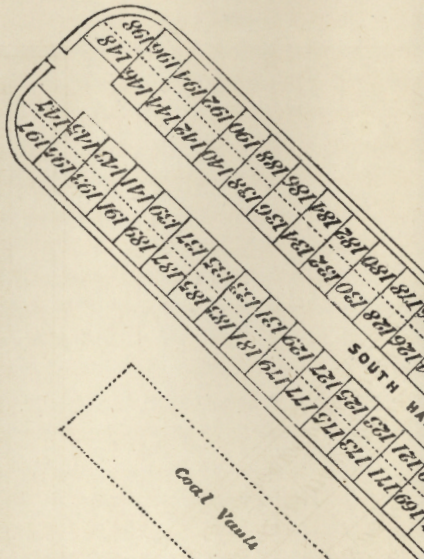 198 196 194 192 190 188 186 184 182 180 178
148 146 144 142 140 138 136 134 132 130 128 126
SOUTH HA
147 145 143 141 139 137 135 133 131 129 127 125 123 121
197 195 193 191 189 187 185 183 181 179 177 175 173 171 169
Coal Vaults